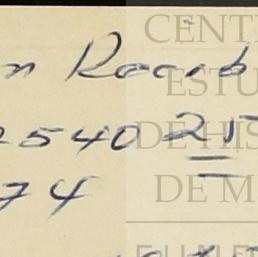 n Recib
2540 25
74
CENT
ESTU
DE HIS
DE M